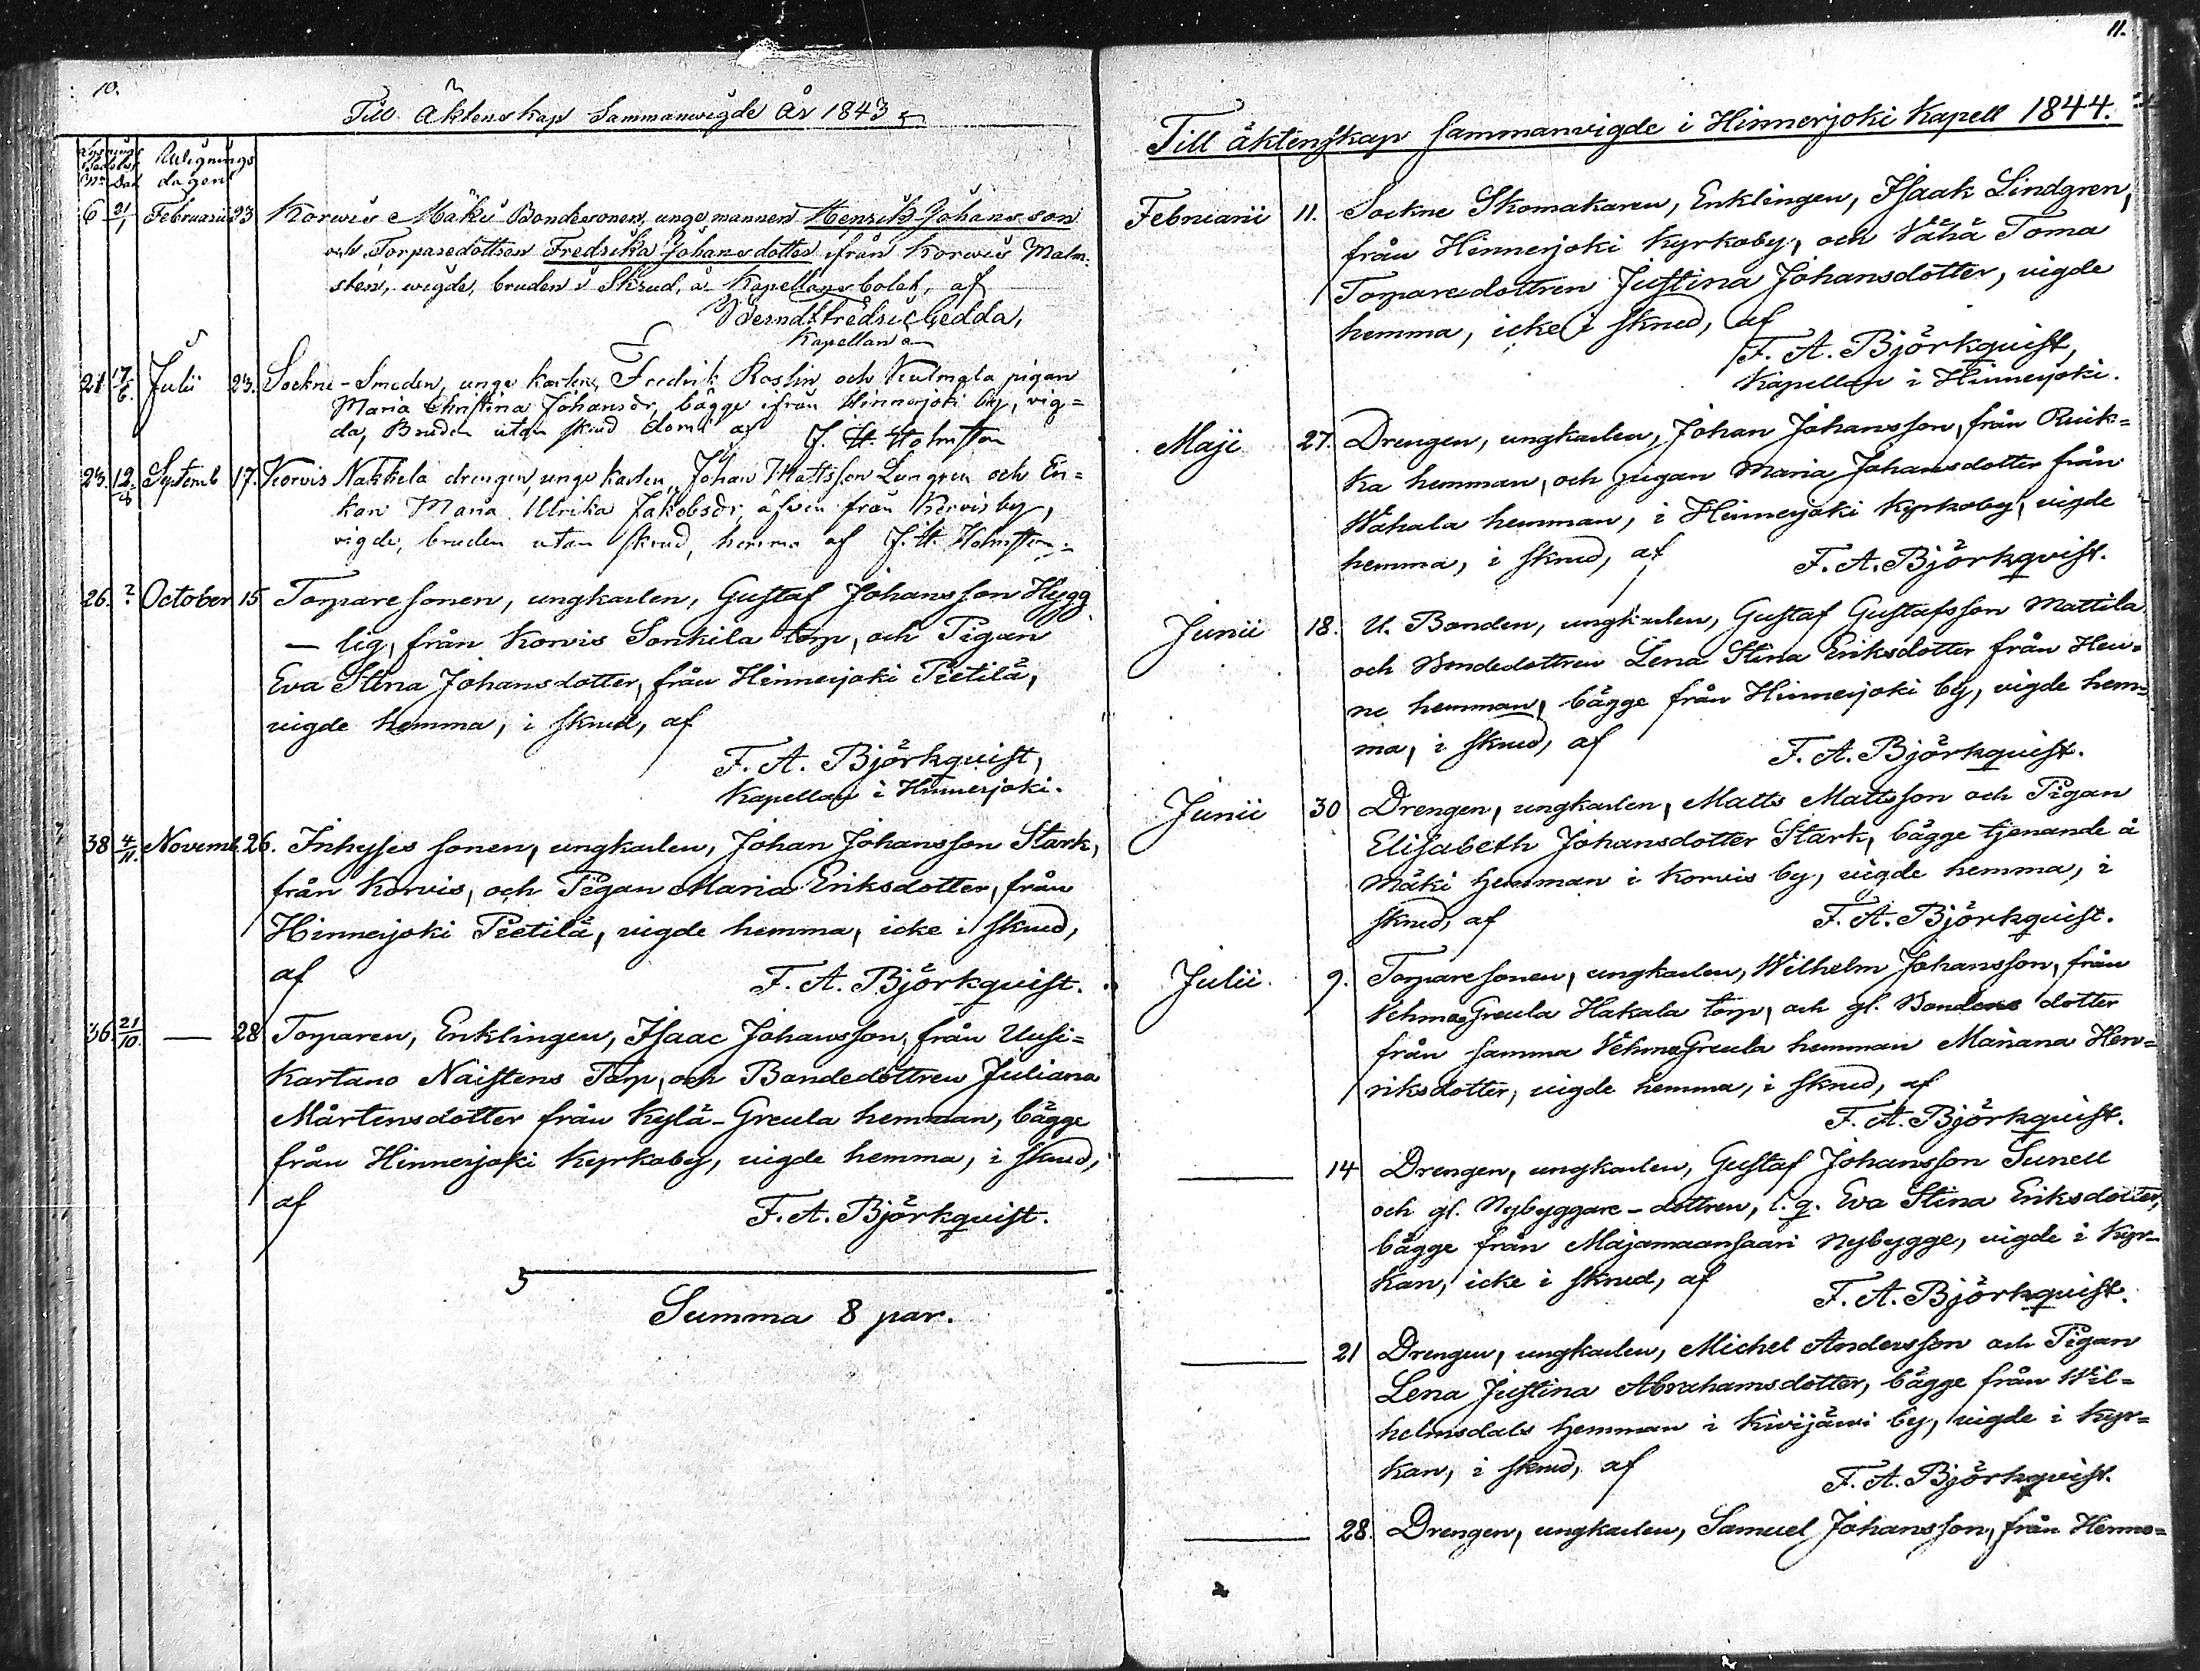 10.
Till Äktenskap Sammanwigde År 1843
Lysnings Sedelns
No Dat
Wignings dagen
6 21/1 Februarii 23 Korwis Mäki Bondesonen, unge mannen Henrik Johansson
och Torparedottren Fredrika Johansdotter ifrån Korwis Malm-
sten, wigde, bruden i Skrud, å Kapellansbolet, af
Berndt Fredric Gedda,
Kapellan
21 17/6 Julii 23. Sockne-Smeden, unge karlen, Fredrik Roslin och pigan
Maria Christina Johansdr, bägge ifrån Hinnerjoki by, vig=
da, Bruden utan skrud af J. H. Holmsten
23. 12/8 Septemb 17. Korvis Nakkila drengen, unge karlen, Johan Mattsson Lungren och En=
kan Maria Ulrika Jakobsdr, äfven från Korvis by,
vigde, bruden utan skrud, hemma af J. H. Holmsten
26. ? October 15 Torparesonen, ungkarlen, Gustaf Johansson Hygg
— lig, från Korvis Sonkila torp, och Pigan
Eva Stina Johansdotter, från Hinnerjoki Pietilä,
vigde hemma, i skrud, af
F. A. Björkquist,
Kapellan i Hinnerjoki.
38 4/11. Novemb. 26. Inhyses sonen, ungkarlen, Johan Johansson Stark,
från Korvis, och Pigan Maria Eriksdotter, från
Hinnerjoki Pietilä, vigde hemma, icke i skrud,
af F. A. Björkquist.
36 21/10. — 28 Torparen, Enklingen, Isaac Johansson, från Uusi=
Kartano Naistens Torp, och Bondedottren Juliana
Mårtensdotter från Kylä-Greula hemman, bägge
från Hinnerjoki Kyrkoby, vigde hemma, i skrud,
af
F. A. Björkquist.
Summa 8 par.
11.
Till äktenskap sammanvigde i Hinnerjoki Kapell 1844.
Februarii 11. Sockne Skomakaren, Enklingen, Isaak Lindgren,
från Hinnerjoki Kyrkoby, och Vähä Toma
Torparedottren Justina Johansdotter, vigde
hemma, icke i skrud, af
F. A. Björkquist,
Kapellan i Hinnerjoki.
Maji 27. Drengen, ungkarlen, Johan Johansson, från Ruik=
ka hemman, och pigan Maria Johansdotter från
Wähala hemman, i Hinnerjoki Kyrkoby, vigde
hemma, i skrud, af F. A. Björkqvist.
Junii 18. U. Bonden, ungkarlen, Gustaf Gustafsson Mattila
och Bondedottren Lena Stina Eriksdotter från Hen=
ne hemman, bägge från Hinnerjoki by, vigde hem=
ma, i skrud, af F. A. Björkquist.
Junii 30 Drengen, ungkarlen, Matts Mattsson och Pigan
Elisabeth Johansdotter Stark, bägge tjenande å
Mäki hemman i Korvis by, vigde hemma, i
skrud, af F. A. Björkquist.
Julii. 9. Torparesonen, ungkarlen, Wilhelm Johansson, från
Vehmas Greula Hakala torp, och gl. Bondens dotter
från samma Vehmas Greula hemman Mariana Hen=
riksdotter, vigde hemma, i skrud, af
F. A. Björkquist.
— 14 Drengen, ungkarlen, Gustaf Johansson Sunell
och gl. Nybyggare-dottren, l. q. Eva Stina Eriksdotter,
bägge från Majamaansaari Nybygge, vigde i Kyr-
kan, icke i skrud, af F. A. Björkquist.
— 21 Drengen, ungkarlen, Michel Andersson och Pigan
Lena Justina Abrahamsdotter, bägge från Wil=
helmsdals hemman i Kivijärvi by, vigde i Kyr=
kan, i skrud, af F. A. Björkqvist.
— 28. Drengen, ungkarlen, Samuel Johansson, från Henno=